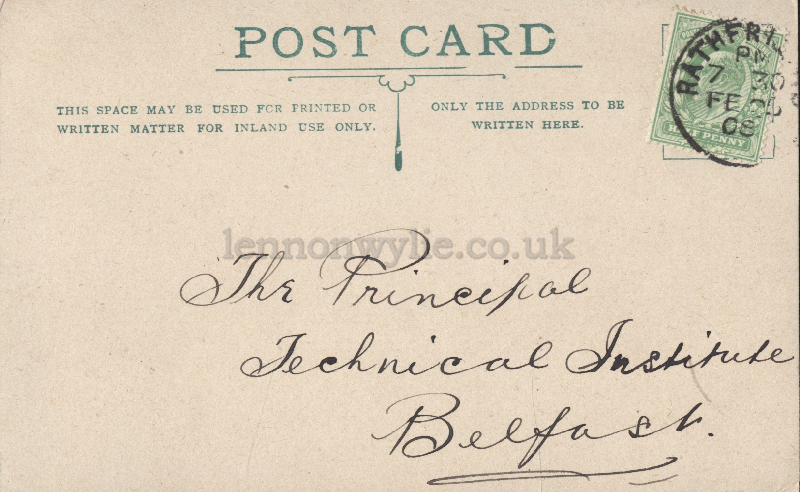 POST CARD
THIS SPACE MAY BE USED FOR PRINTED OR
WRITTEN MATTER FOR INLAND USE ONLY.
ONLY THE ADDRESS TO BE
WRITTEN HERE.
RATHFRIL
PM
7 30
FE
08
HALF PENNY
lennonwylie.co.uk
The Principal
Technical Institute
Belfast.